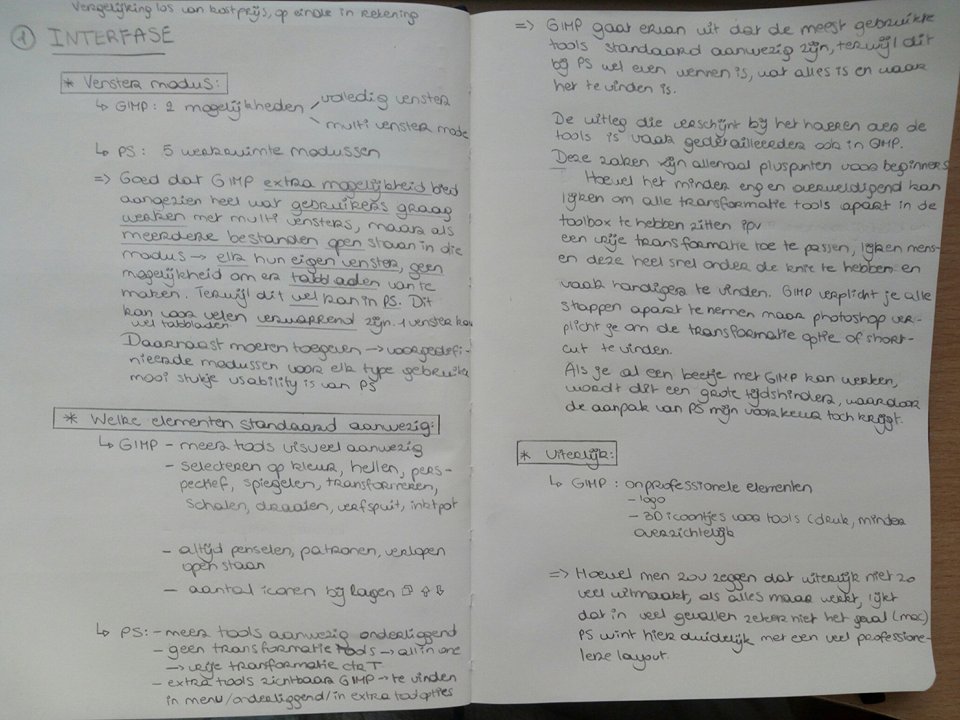 Vergelijking los van kostprijs, op einde in rekening
① INTERFASE
* Venster modus:
↳ GIMP: 2 mogelijkheden volledig venster
multi venster mode
↳ PS: 5 werkruimte modussen
=> Goed dat GIMP extra mogelijkheid bied
aangezien heel wat gebruikers graag
werken met multi vensters, maar als
meerdere bestanden open staan in die
modus → elk hun eigen venster, geen
mogelijkheid om er tabbladen van te
maken. Terwijl dit wel kan in PS. Dit
kan voor velen verwarrend zijn. 1 venster kan
wel tabbladen
Daarnaast moeten toegeven → voorgedefi-
nieerde modussen voor elk type gebruiker
mooi stukje usability is van PS
* Welke elementen standaard aanwezig:
↳ GIMP - meer tools visueel aanwezig
- selecteren op kleur, hellen, pers-
pectief, spiegelen, transformeren,
schalen, draaien, verfspuit, inktpot
- altijd penselen, patronen, verlopen
open staan
- aantal iconen bij lagen
↳ PS: - meer tools aanwezig onderliggend
- geen transformatie tools → all in one
→ vrije transformatie ctrl T
- extra tools zichtbaar GIMP → te vinden
in menu/onderliggend/in extra toolopties
=> GIMP gaat ervan uit dat de meest gebruikte
tools standaard aanwezig zijn, terwijl dit
bij PS wel even wennen is, wat alles is en waar
het te vinden is.
De uitleg die verschijnt bij het hoeren over de
tools is vaak gedetailleerder ook in GIMP.
Deze zaken zijn allemaal pluspunten voor beginners
Hoewel het minder eng en overweldigend kan
lijken om alle transformatie tools apart in de
toolbox te hebben zitten ipv
een vrije transformatie toe te passen, lijken mens-
en deze heel snel onder de knie te hebben en
vaak handiger te vinden. GIMP verplicht je alle
stappen apart te nemen maar photoshop ver-
plicht je om de transformatie optie of short-
cut te vinden.
Als je al een beetje met GIMP kan werken,
wordt dit een grote tijdshinder, waardoor
de aanpak van PS mijn voorkeur toch krijgt.
* Uiterlijk:
↳ GIMP: onprofessionele elementen
- logo
- 3D icoontjes voor tools (druk, minder
overzichtelijk
=> Hoewel men zou zeggen dat uiterlijk niet zo
veel uitmaakt, als alles maar werkt, lijkt
dat in veel gevallen zeker niet het geval (mac)
PS wint hier duidelijk met een veel professione-
lere layout.